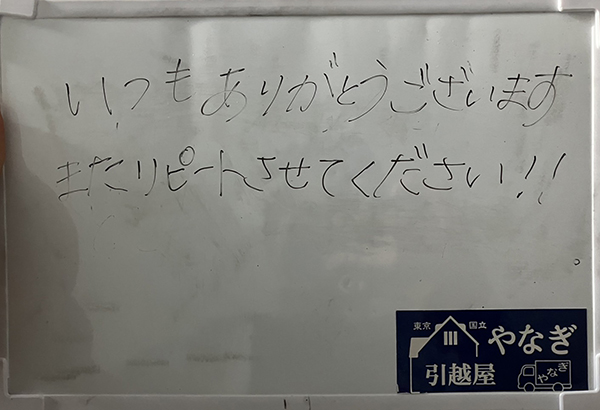 いつもありがとうございます
またリピートさせてください!!
東京 国立 やなぎ
引越屋 やなぎ